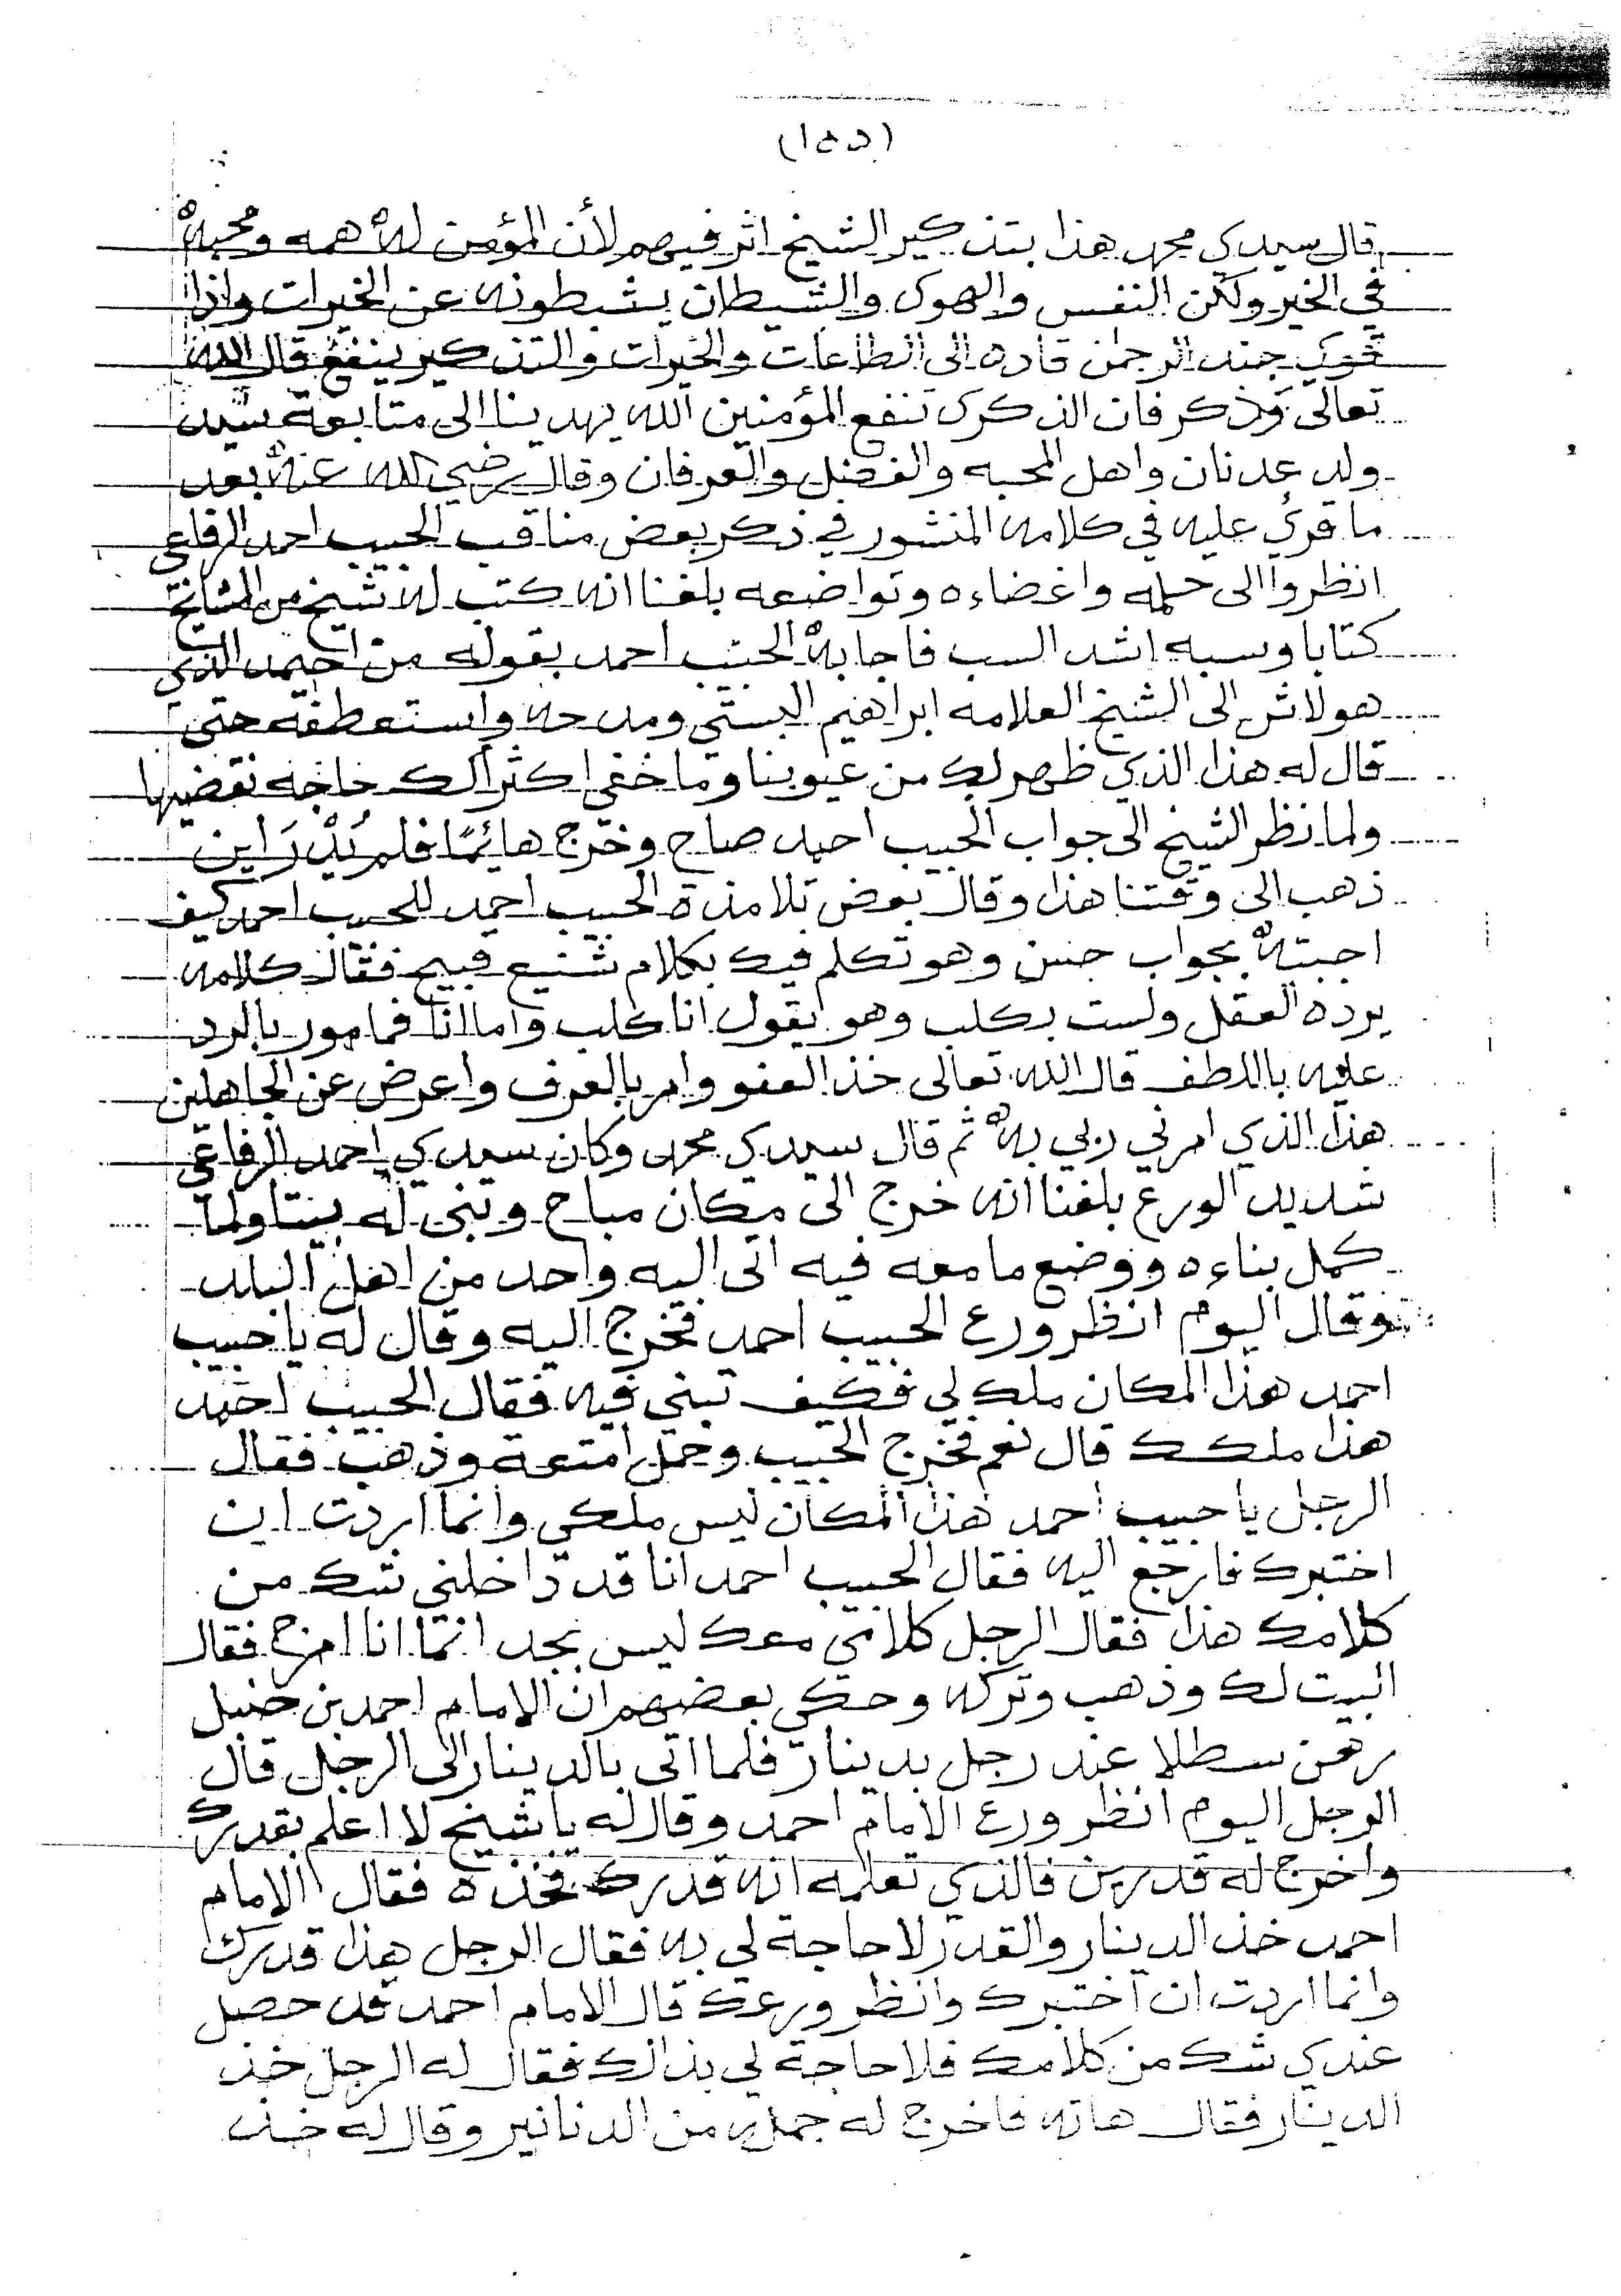 (١٥٥)
قال سيدي محمد هذا بتذكير الشيخ اثر فيهم لأن المؤمن له همه ومحبه
في الخير ولكن النفس والهوى والشيطان يثبطونه عن الخيرات واذا
قوي جند الرحمن قاده الى الطاعات والخيرات والتذكير ينفع قال الله
تعالى وذكر فان الذكرى تنفع المؤمنين الله يهدينا الى متابعة سيد
ولد عدنان واهل المحبه والفضل والعرفان وقال رضي الله عنه بعد
ما قرئ عليه في كلامه المنشور في ذكر بعض مناقب الحبيب احمد الرفاعي
انظروا الى حلمه واغضاءه وتواضعه بلغنا انه كتب له شيخ من المشائخ
كتابا وسبه اشد السب فاجابه الحبيب احمد بقوله من احيمد الذي
هو لاش الى الشيخ العلامه ابراهيم البستي ومدحه واستعطفه حتى
قال له هذا الذي ظهر لك من عيوبنا وما خفي اكثر ألك حاجه نقضيها
ولما نظر الشيخ الى جواب الحبيب احمد صاح وخرج هائمًا فلم يُدْرَ اين
ذهب الى وقتنا هذا وقال بعض تلامذة الحبيب احمد للحبيب احمد كيف
اجبته بجواب حسن وهو تكلم فيك بكلام شنيع قبيح فقال كلامه
يرده العقل ولست بكلب وهو يقول انا كلب واما انا فمامور بالرد
عليه باللطف قال الله تعالى خذ العفو وامر بالعرف واعرض عن الجاهلين
هذا الذي امرني ربي به ثم قال سيدي محمد وكان سيدي احمد الرفاعي
شديد الورع بلغنا انه خرج الى مكان مباح وبنى له بيتا ولما
كمل بناءه ووضع ما معه فيه اتى اليه واحد من اهل البلد
وقال اليوم انظر ورع الحبيب احمد فخرج اليه وقال له يا حبيب
احمد هذا المكان ملك لي فكيف تبني فيه فقال الحبيب احمد
هذا ملكك قال نعم فخرج الحبيب وحمل امتعة وذهب فقال
الرجل يا حبيب احمد هذا المكان ليس ملكي وانما اردت ان
اختبرك فارجع اليه فقال الحبيب احمد انا قد داخلني شك من
كلامك هذا فقال الرجل كلامي معك ليس بجد انما انا امزح فقال
البيت لك وذهب وتركه وحكي بعضهم ان الامام احمد بن حنبل
رهن سطلا عند رجل بدينار فلما اتى بالدينار الى الرجل قال
الرجل اليوم انظر ورع الامام احمد وقال له يا شيخ لا اعلم بقدرك
واخرج له قدرين فالذي تعلمه انه قدرك فخذه فقال الامام
احمد خذ الدينار والقدر لا حاجة لي به فقال الرجل هذا قدرك
وانما اردت ان اختبرك وانظر ورعك قال الامام احمد قد حصل
عندي شك من كلامك فلا حاجة لي بذالك فقال له الرجل خذ
الدينار فقال هاته فاخرج له جمله من الدنانير وقال له خذ